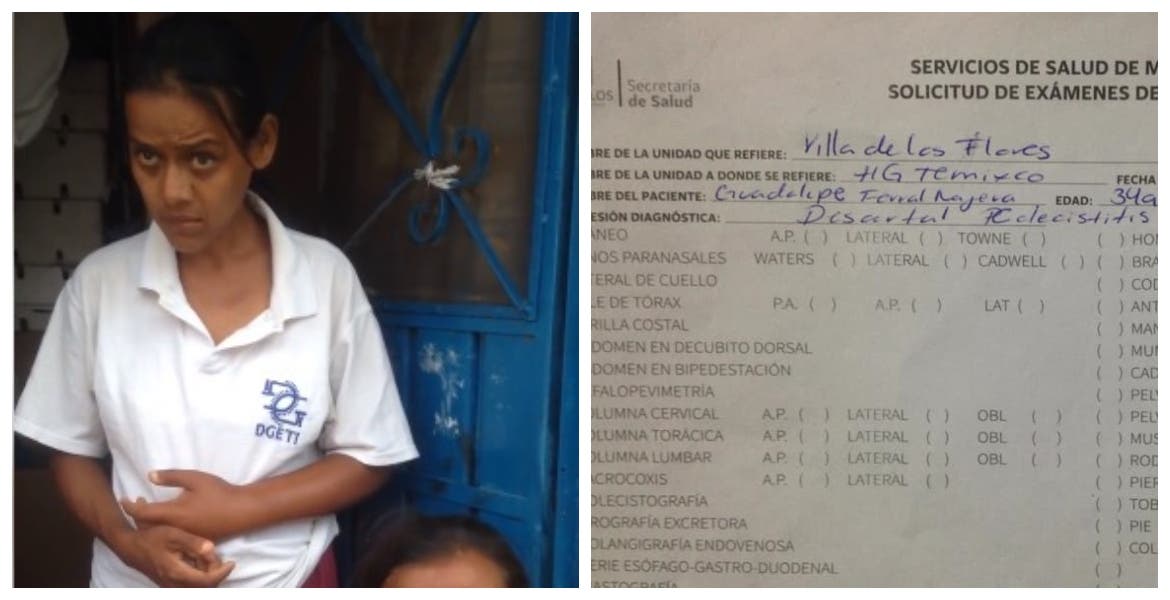 DGETI
LOS
Secretaría
de Salud
SERVICIOS DE SALUD DE M
SOLICITUD DE EXÁMENES DE
BRE DE LA UNIDAD QUE REFIERE: Villa de las Flores
BRE DE LA UNIDAD A DONDE SE REFIERE: HG Temixco FECHA
BRE DEL PACIENTE: Guadalupe EDAD: 34a
ESIÓN DIAGNÓSTICA: Descartal
ANEO A.P. ( ) LATERAL ( ) TOWNE ( ) ( ) HO
NOS PARANASALES WATERS ( ) LATERAL ( ) CADWELL ( ) ( ) BRA
TERAL DE CUELLO ( ) COD
LE DE TÓRAX P.A. ( ) A.P. ( ) LAT ( ) ( ) ANT
RILLA COSTAL ( ) MAN
DOMEN EN DECUBITO DORSAL ( ) MUÑ
DOMEN EN BIPEDESTACIÓN ( ) CAD
FALOPEVIMETRÍA ( ) PELV
OLUMNA CERVICAL A.P. ( ) LATERAL ( ) OBL ( ) ( ) PELV
OLUMNA TORÁCICA A.P. ( ) LATERAL ( ) OBL ( ) ( ) MUS
OLUMNA LUMBAR A.P. ( ) LATERAL ( ) OBL ( ) ( ) ROD
ACROCOXIS A.P. ( ) LATERAL ( ) ( ) PIER
OLECISTOGRAFÍA ( ) TOB
ROGRAFÍA EXCRETORA ( ) PIE
OLANGIGRAFÍA ENDOVENOSA ( ) COL
ERIE ESÓFAGO-GASTRO-DUODENAL ( )